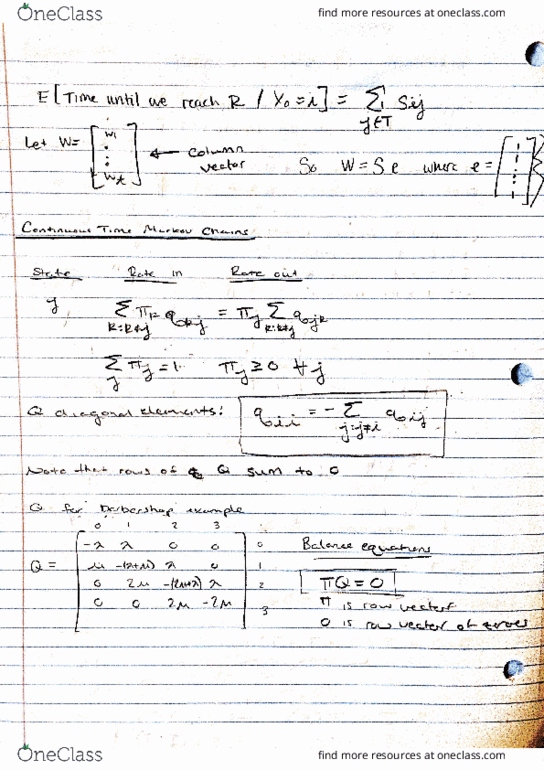 OneClass find more resources at oneclass.com
E[Time until we reach R / X₀ = i] = Σ Sij
j∈T
Let W = [w₁ ⋮ wₜ] ← column vector So W = Se where e = [1 ⋮ 1]
Continuous Time Markov Chains
State Rate in Rate out
j Σ πₖ qₖⱼ = πⱼ Σ qⱼₖ
k:k≠j k:k≠j
Σ πⱼ = 1 πⱼ ≥ 0 ∀ j
j
Q diagonal elements: qᵢᵢ = - Σ qᵢⱼ
j:j≠i
Note that rows of Q sum to 0
Q for Barbershop example
0 1 2 3
-λ λ 0 0 0 Balance equations
Q = μ -(λ+μ) λ 0 1
0 2μ -(2μ+λ) λ 2 πQ = 0
0 0 2μ -2μ 3 π is row vector
0 is row vector of zeroes
OneClass find more resources at oneclass.com